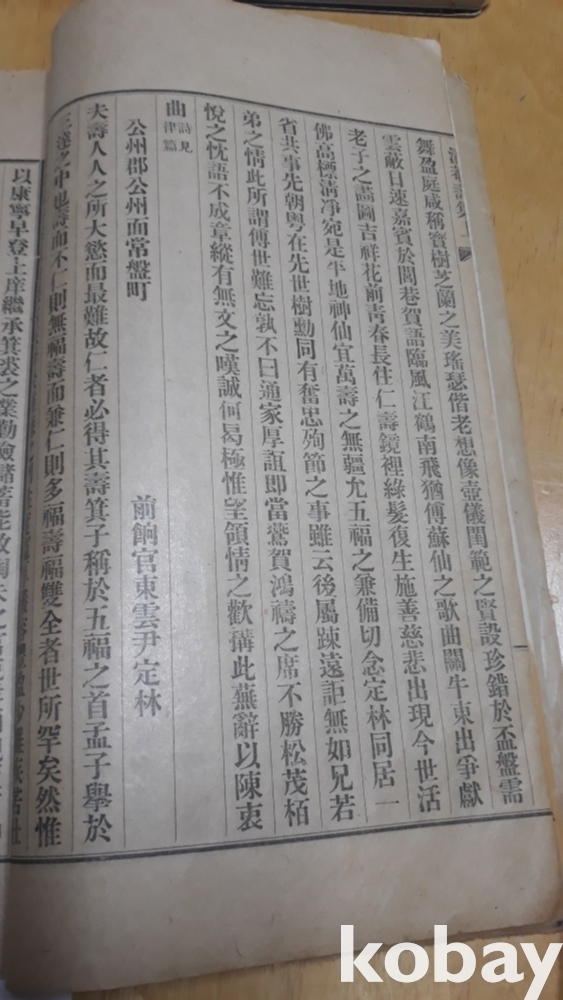 舞盈庭咸稱寶樹芝蘭之美瑤瑟偕老想像壺儀閨範之賢設珍錯於盃盤需
雲蔽日速嘉賓於閭巷賀語臨風江鶴南飛猶傳蘇仙之歌曲關牛東出爭獻
老子之壽圖吉祥花前靑春長住仁壽鏡裡綠髮復生施善慈悲出現今世活
佛高標淸淨宛是平地神仙宜萬壽之無疆尤五福之兼備切念定林同居一
省共事先朝粤在先世樹勳同有奮忠殉節之事雖云後屬踈遠詎無如兄若
弟之情此所謂傳世難忘孰不曰通家厚誼即當鶯賀鴻禱之席不勝松茂栢
悅之忱語不成章縱有無文之嘆誠何曷極惟望領情之歡搆此蕪辭以陳衷
曲 詩見律篇
公州郡公州面常盤町
前餉官東雲尹定林
夫壽人人之所大慾而最難故仁者必得其壽箕子稱於五福之首孟子擧於
三達之中也壽而不仁則無福壽而兼仁則多福壽福雙全者世所罕矣然惟
以康寧早登上庠繼承箕裘之業勤儉儲蓄
kobay